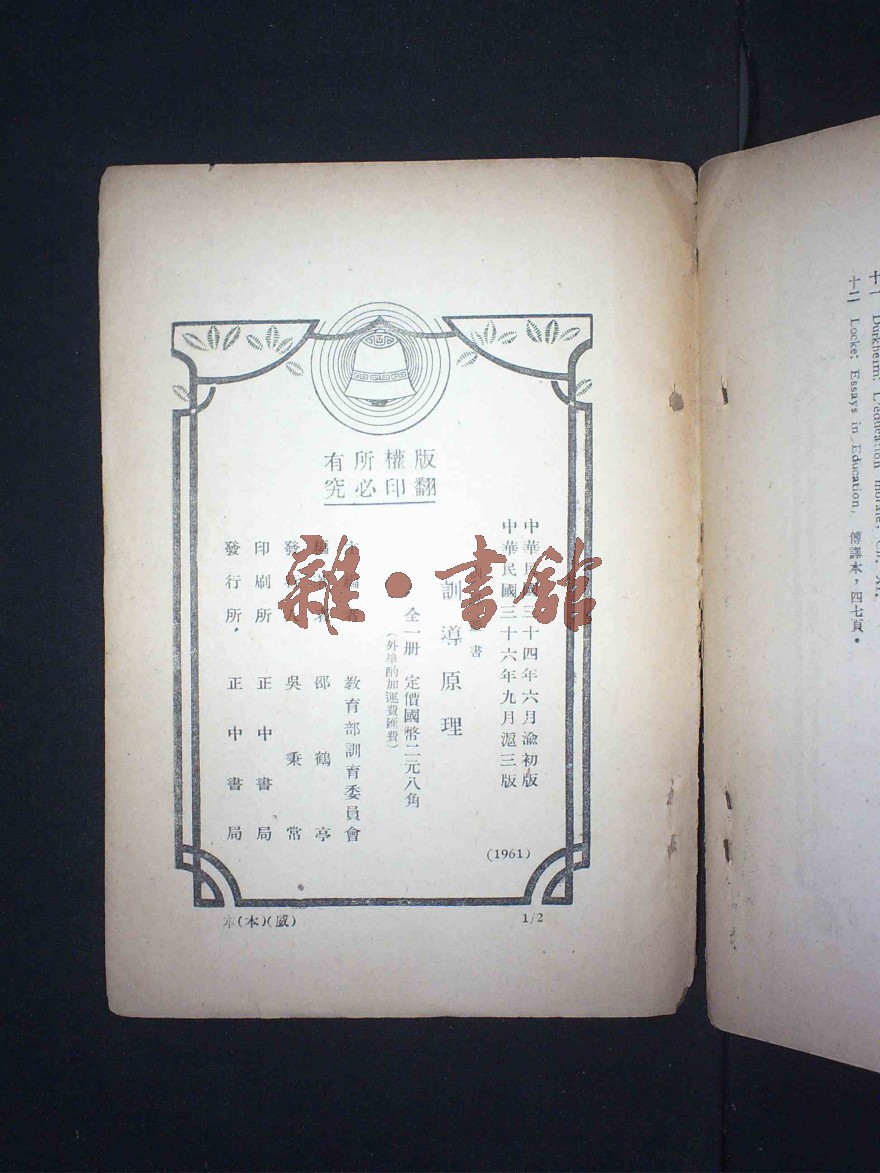 十一 Durkheim: L'education morale, Ch. XI.
十二 Locke: Essays in Education, 傅譯本,四七頁。
版權所有
翻印必究
中華民國三十四年六月渝初版
中華民國三十六年九月滬三版
(1961)
書
訓導原理
全一册 定價國幣二元八角
(外埠酌加運費匯費)
教育部訓育委員會
邵鶴亭
發 吳秉常
印刷所 正中書局
發行所 正中書局
1/2
(本)(威)
雜·書館